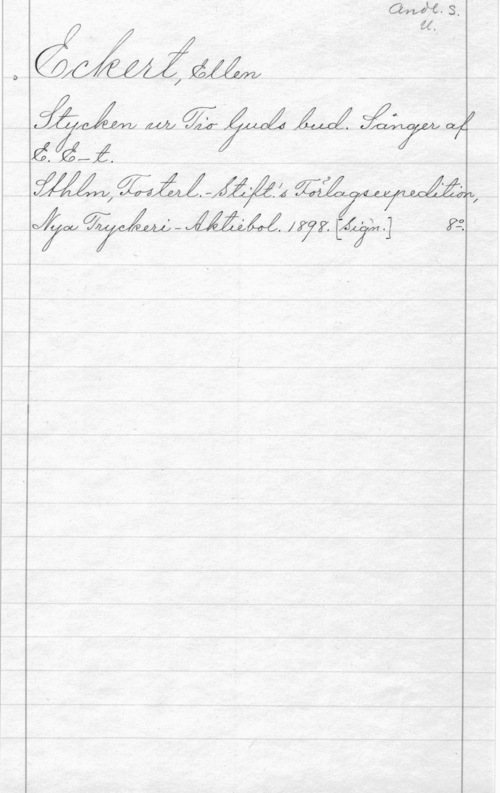 Andl. S.
U.
Eckert, Ellen
Stycken ur Tio Guds bud. Sånger af
E. E-t.
Sthlm, Fosterl.-Stift:s Förlagsexpedition,
Nya Tryckeri-Aktiebol. 1898. [Sign.] 8º.